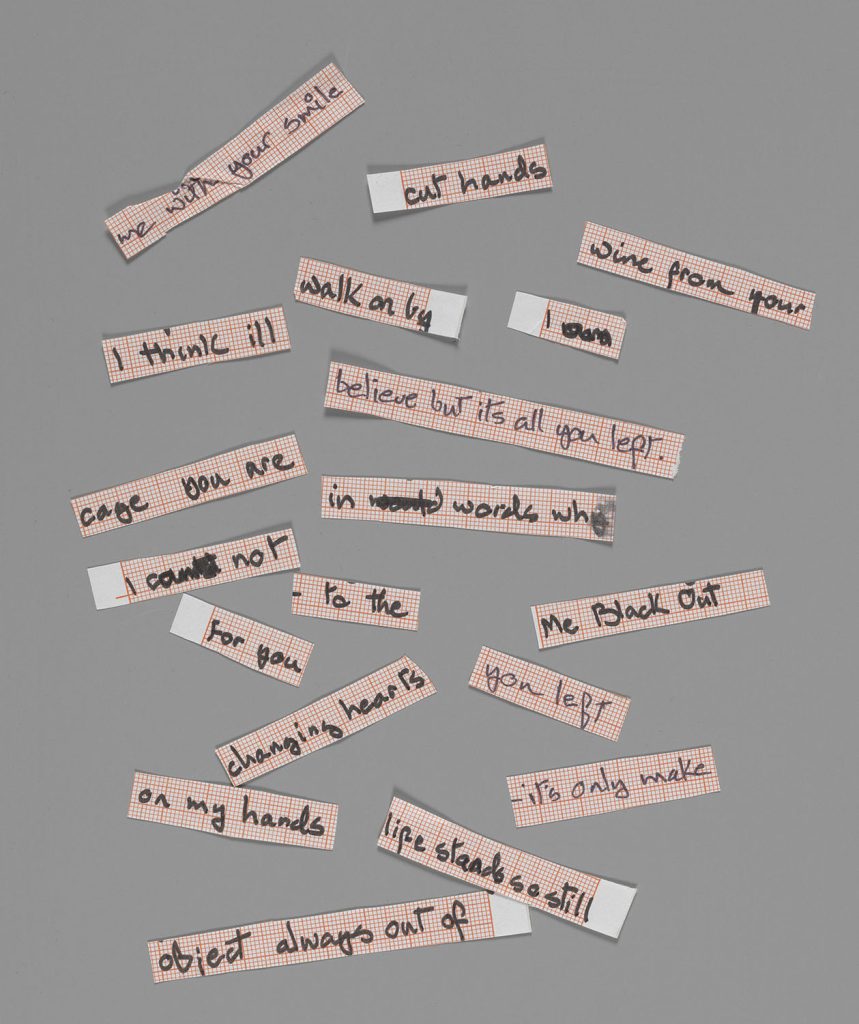 me with your smile
cut hands
wine from your
walk on by
I
I think ill
believe but its all you left.
cage you are
in words wh
I not
- to the
me Black Out
for you
you left
changing hearts
-it's only make
on my hands
life stands so still
object always out of